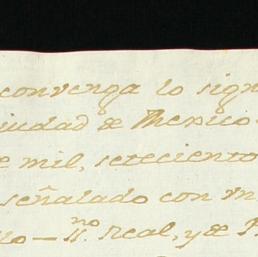 convenga lo sign
iudad de Mexico
e mil, seteciento
señalado con m
no. real, y de